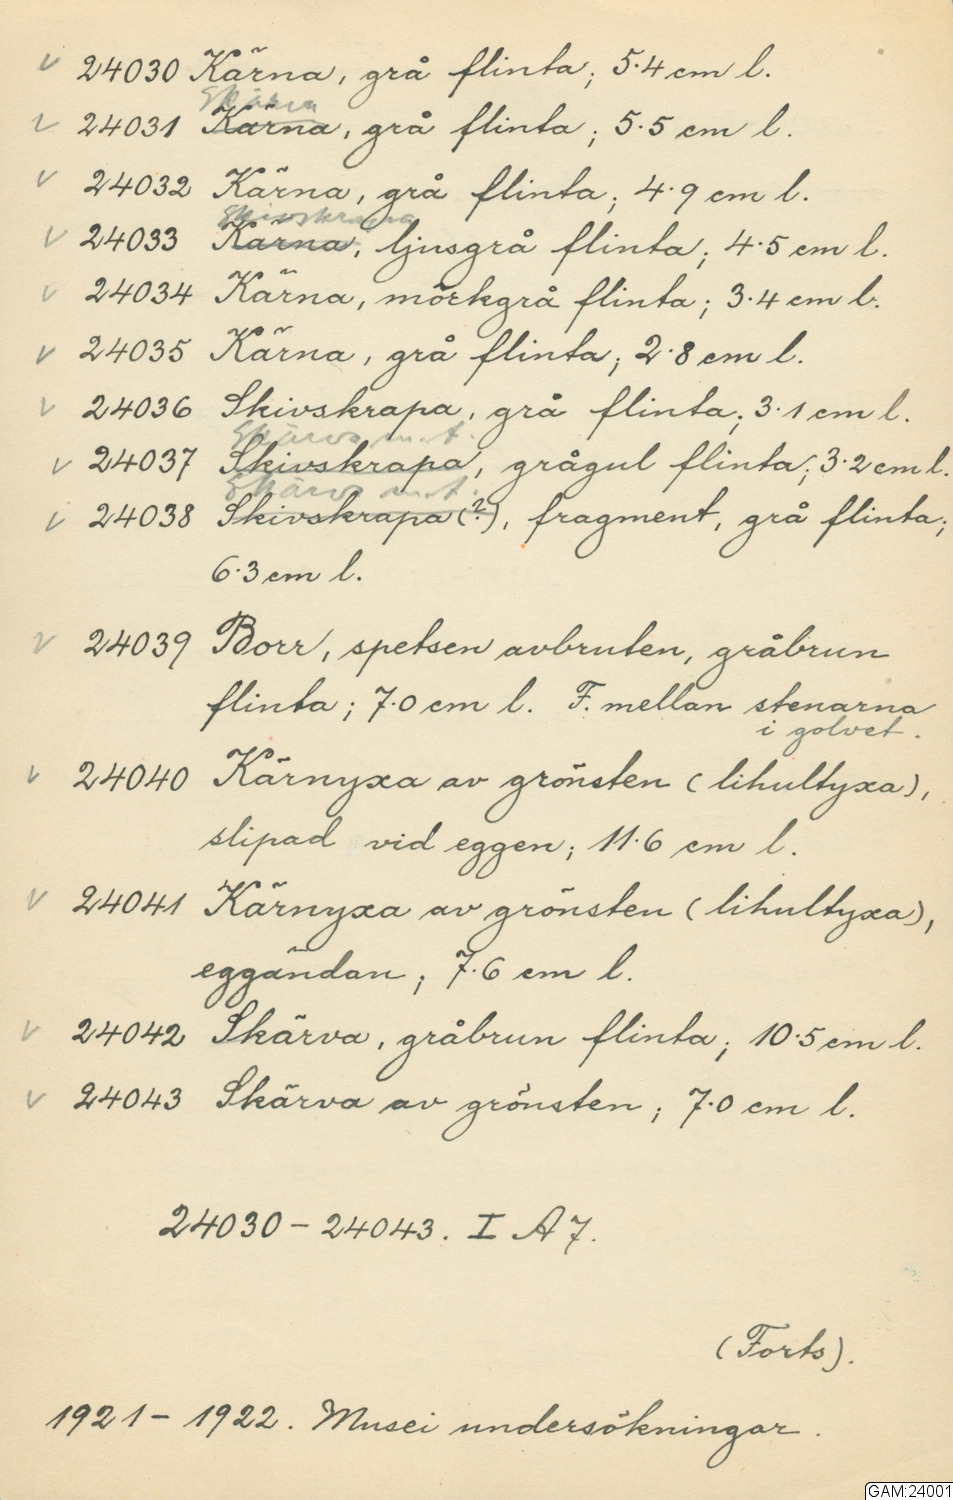 v 24030 Kärna, grå flinta; 5.4 cm l.
Skärva
v 24031 Kärna, grå flinta; 5.5 cm l.
v 24032 Kärna, grå flinta; 4.9 cm l.
Skivskrapa
v 24033 Kärna, ljusgrå flinta; 4.5 cm l.
v 24034 Kärna, mörkgrå flinta; 3.4 cm l.
v 24035 Kärna, grå flinta; 2.8 cm l.
v 24036 Skivskrapa, grå flinta; 3.1 cm l.
Skärva m.t.
v 24037 Skivskrapa, grågul flinta; 3.2 cm l.
Skärva m.t.
v 24038 Skivskrapa (?), fragment, grå flinta;
6.3 cm l.
v 24039 Borr, spetsen avbruten, gråbrun
flinta; 7.0 cm l. F. mellan stenarna
i golvet.
v 24040 Kärnyxa av grönsten (lihultyxa),
slipad vid eggen; 11.6 cm l.
v 24041 Kärnyxa av grönsten (lihultyxa),
eggändan; 7.6 cm l.
v 24042 Skärva, gråbrun flinta; 10.5 cm l.
v 24043 Skärva av grönsten; 7.0 cm l.
24030 - 24043. I A 7.
(Forts).
1921 - 1922. Musei undersökningar.
GAM:24001